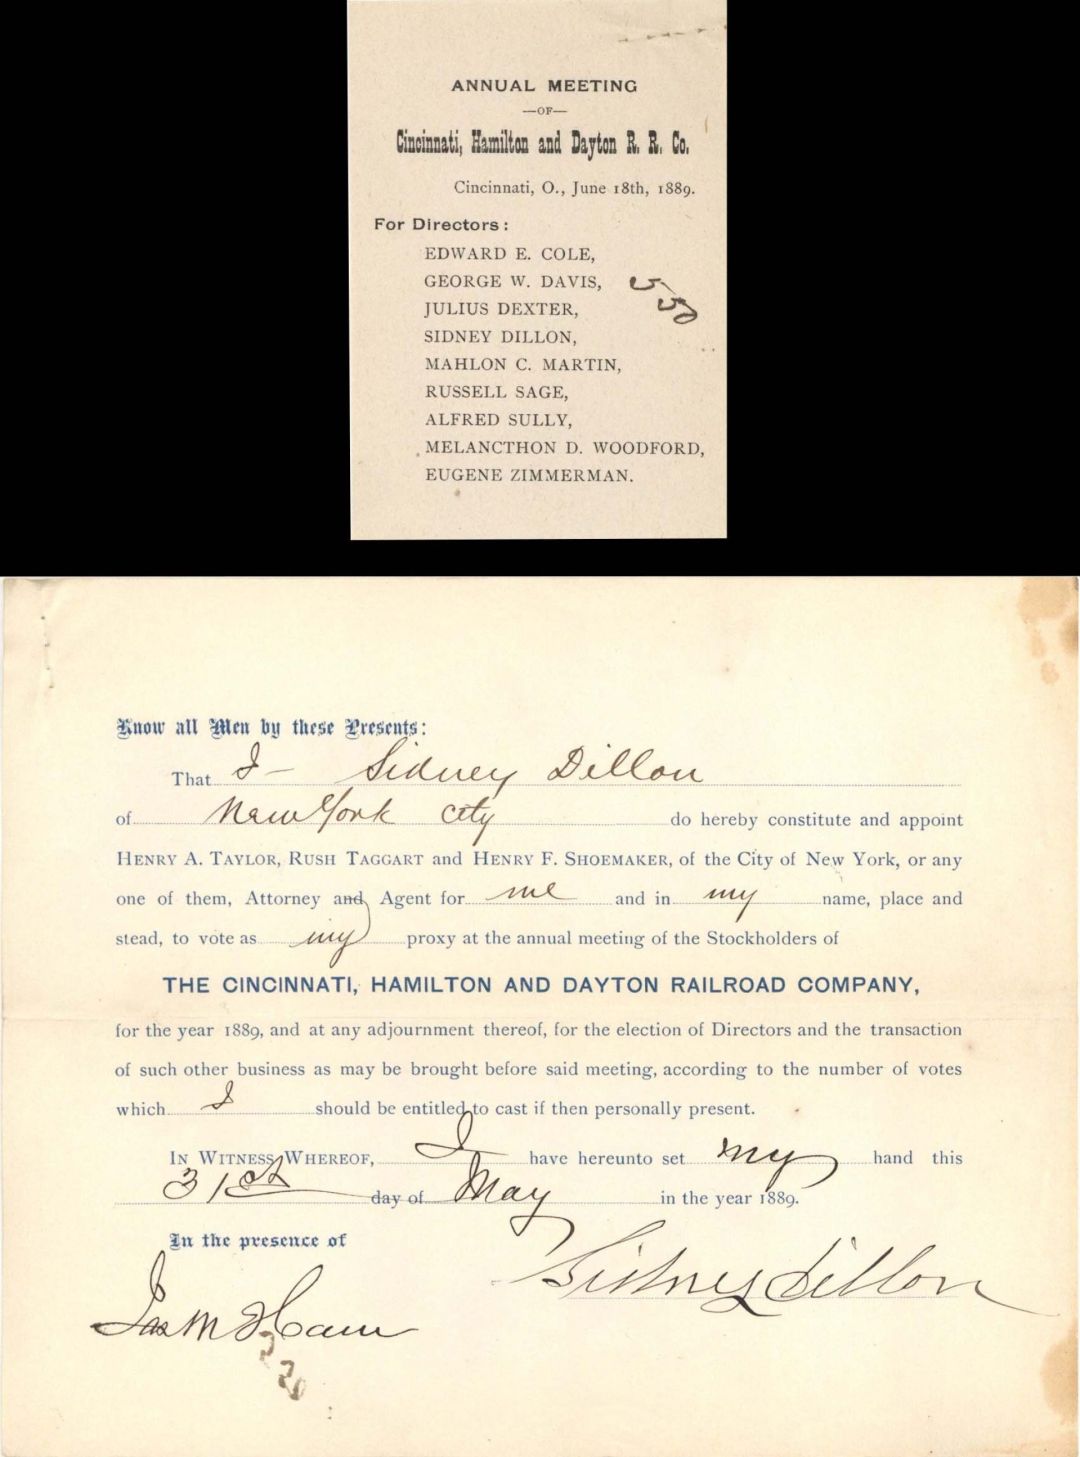 ANNUAL MEETING
—OF—
Cincinnati, Hamilton and Dayton R. R. Co.
Cincinnati, O., June 18th, 1889.
For Directors:
EDWARD E. COLE,
GEORGE W. DAVIS,
JULIUS DEXTER,
SIDNEY DILLON,
MAHLON C. MARTIN,
RUSSELL SAGE,
ALFRED SULLY,
MELANCTHON D. WOODFORD,
EUGENE ZIMMERMAN.
550
Know all Men by these Presents:
That I – Sidney Dillon
of New York City do hereby constitute and appoint
HENRY A. TAYLOR, RUSH TAGGART and HENRY F. SHOEMAKER, of the City of New York, or any
one of them, Attorney and Agent for me and in my name, place and
stead, to vote as my proxy at the annual meeting of the Stockholders of
THE CINCINNATI, HAMILTON AND DAYTON RAILROAD COMPANY,
for the year 1889, and at any adjournment thereof, for the election of Directors and the transaction
of such other business as may be brought before said meeting, according to the number of votes
which I should be entitled to cast if then personally present.
IN WITNESS WHEREOF, I have hereunto set my hand this
31st day of May in the year 1889.
In the presence of
Sidney Dillon
Jas M Ham